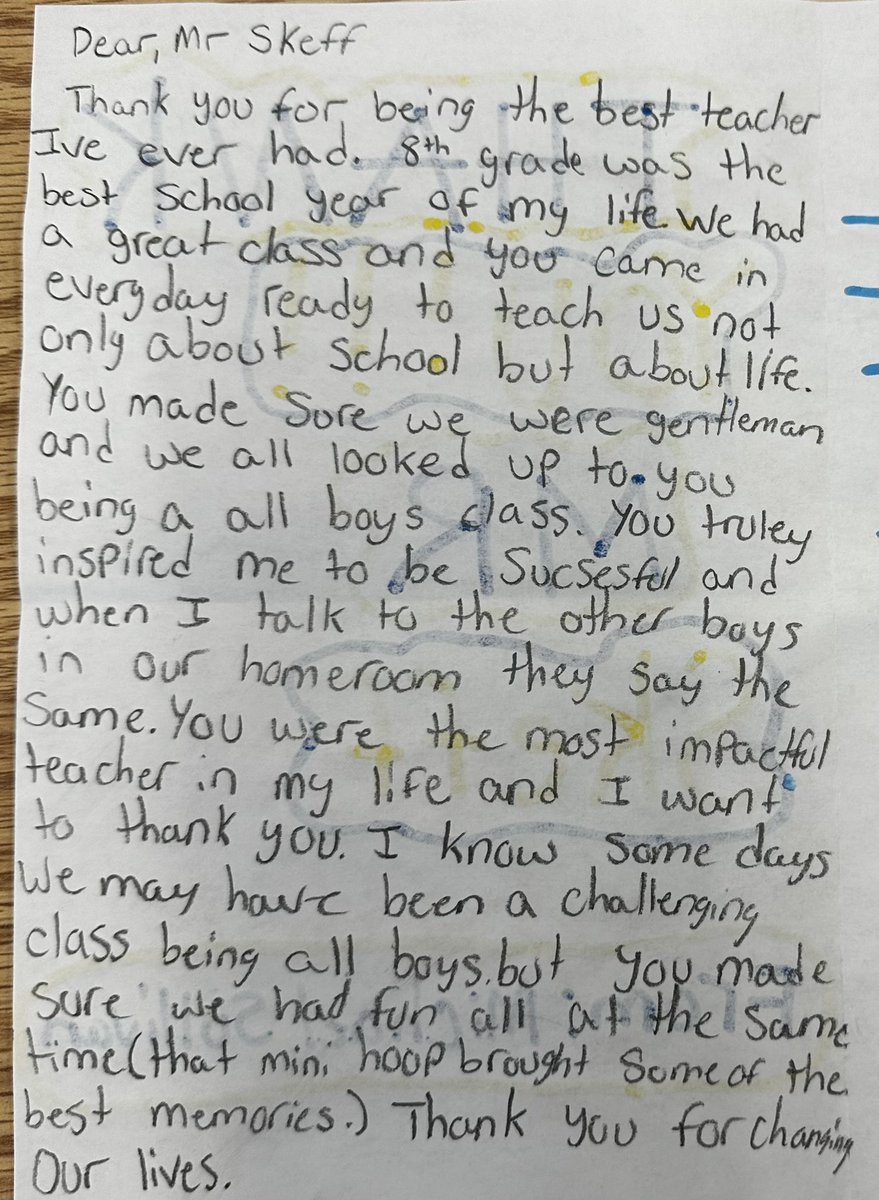 Dear, Mr Skeff
Thank you for being the best teacher
Ive ever had. 8th grade was the
best school year of my life. We had
a great class and you came in
everyday ready to teach us not
only about school but about life.
You made sure we were gentleman
and we all looked up to you
being a all boys class. You truley
inspired me to be Sucsesful and
when I talk to the other boys
in our homeroom they say the
same. You were the most impactful
teacher in my life and I want
to thank you. I know some days
We may have been a challenging
class being all boys, but you made
sure we had fun all at the same
time (that mini hoop brought some of the
best memories.) Thank you for changing
Our lives.